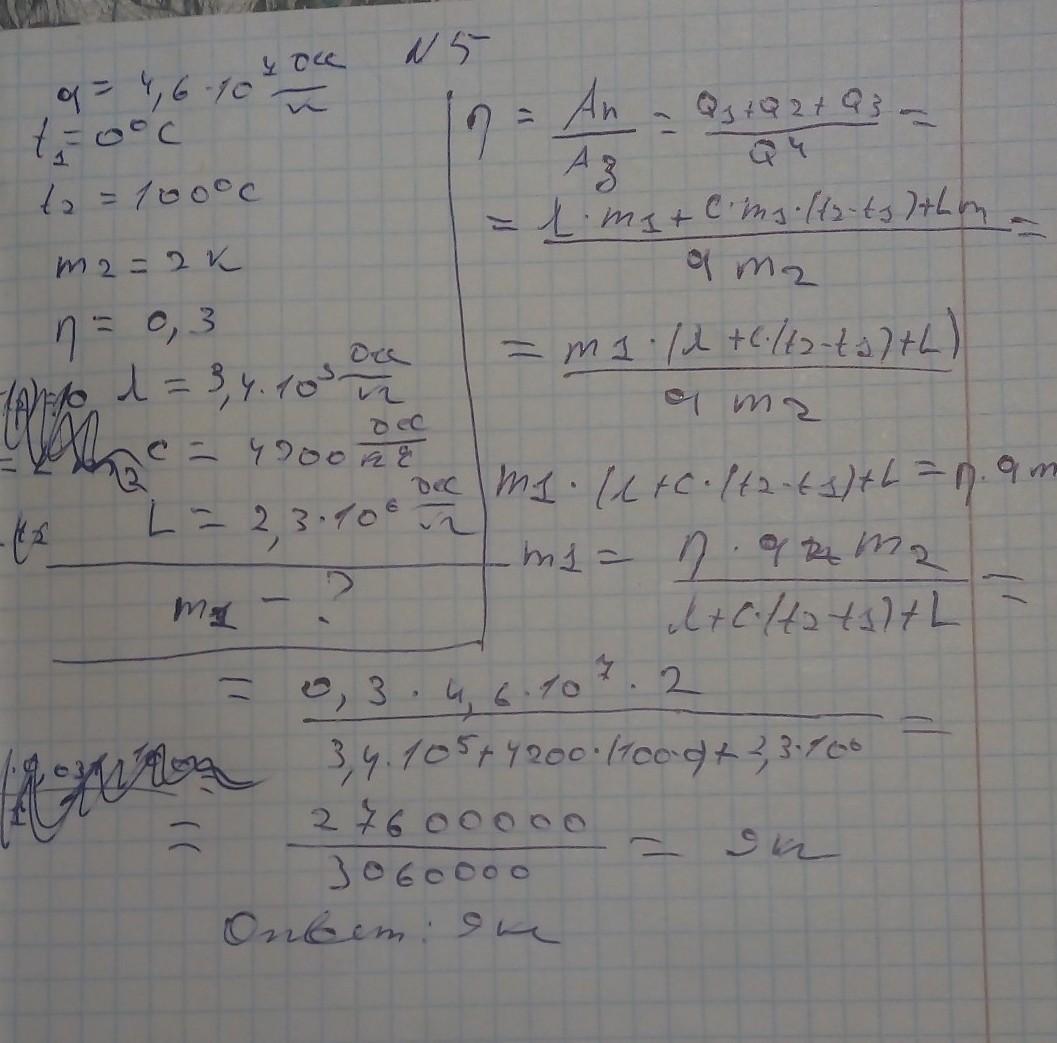 N 5
q = 4,6·10⁷ Дж/кг
t₁ = 0°C
t₂ = 100°C
m₂ = 2 к
η = 0,3
λ = 3,4·10⁵ Дж/кг
c = 4200 Дж/кг°
L = 2,3·10⁶ Дж/кг
m₁ - ?
η = Aп/Aз = (Q₁+Q₂+Q₃)/Q₄ =
= (λ·m₁ + c·m₁·(t₂-t₁)+Lm)/(q m₂) =
= (m₁·(λ+c·(t₂-t₁)+L))/(q m₂)
m₁·(λ+c·(t₂-t₁)+L = η·q m
m₁ = (η·q m₂)/(λ+c·(t₂-t₁)+L) =
= (0,3·4,6·10⁷·2)/(3,4·10⁵+4200·(100-0)+2,3·10⁶) =
= 27600000/3060000 = 9кг
Ответ: 9кг